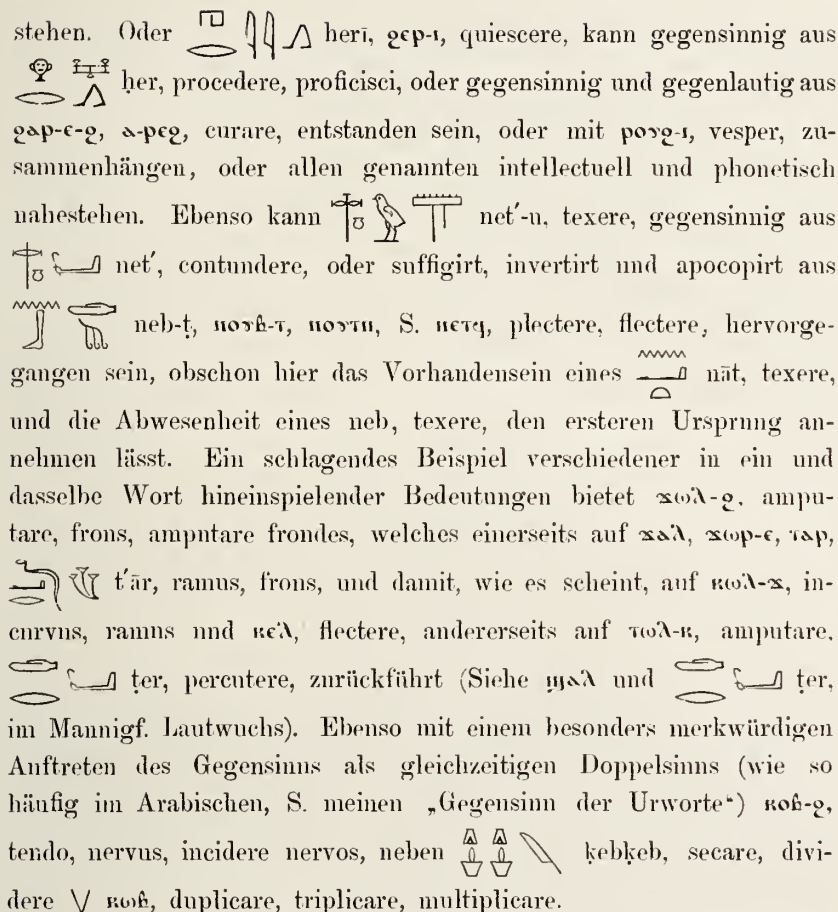 stehen. Oder herī, ϩⲉⲣ-ⲓ, quiescere, kann gegensinnig aus
ḥer, procedere, proficisci, oder gegensinnig und gegenlautig aus
ϩⲁⲣ-ⲉ-ϩ, ⲁ-ⲣⲉϩ, curare, entstanden sein, oder mit ⲣⲟⲩϩ-ⲓ, vesper, zu-
sammenhängen, oder allen genannten intellectuell und phonetisch
nahestehen. Ebenso kann net′-u, texere, gegensinnig aus
net′, contundere, oder suffigirt, invertirt und apocopirt aus
neb-ṭ, ⲛⲟⲩⲃ-ⲧ, ⲛⲟⲩⲧⲛ, S. ⲛⲉⲧϥ, plectere, flectere, hervorge-
gangen sein, obschon hier das Vorhandensein eines nāt, texere,
und die Abwesenheit eines neb, texere, den ersteren Ursprung an-
nehmen lässt. Ein schlagendes Beispiel verschiedener in ein und
dasselbe Wort hineinspielender Bedeutungen bietet ϫⲱⲗ-ϩ, ampu-
tare, frons, amputare frondes, welches einerseits auf ϫⲁⲗ, ϫⲱⲣ-ⲉ, ⲧⲁⲣ,
t′ār, ramus, frons, und damit, wie es scheint, auf ⲕⲱⲗ-ϫ, in-
curvus, ramus und ⲕⲉⲗ, flectere, andererseits auf ⲧⲱⲗ-ⲕ, amputare,
ṭer, percutere, zurückführt (Siehe ϣⲁⲗ und ṭer,
im Mannigf. Lautwuchs). Ebenso mit einem besonders merkwürdigen
Auftreten des Gegensinns als gleichzeitigen Doppelsinns (wie so
häufig im Arabischen, S. meinen „Gegensinn der Urworte“) ⲕⲟⲃ-ϩ,
tendo, nervus, incidere nervos, neben ḳebḳeb, secare, divi-
dere √ ⲕⲱⲃ, duplicare, triplicare, multiplicare.